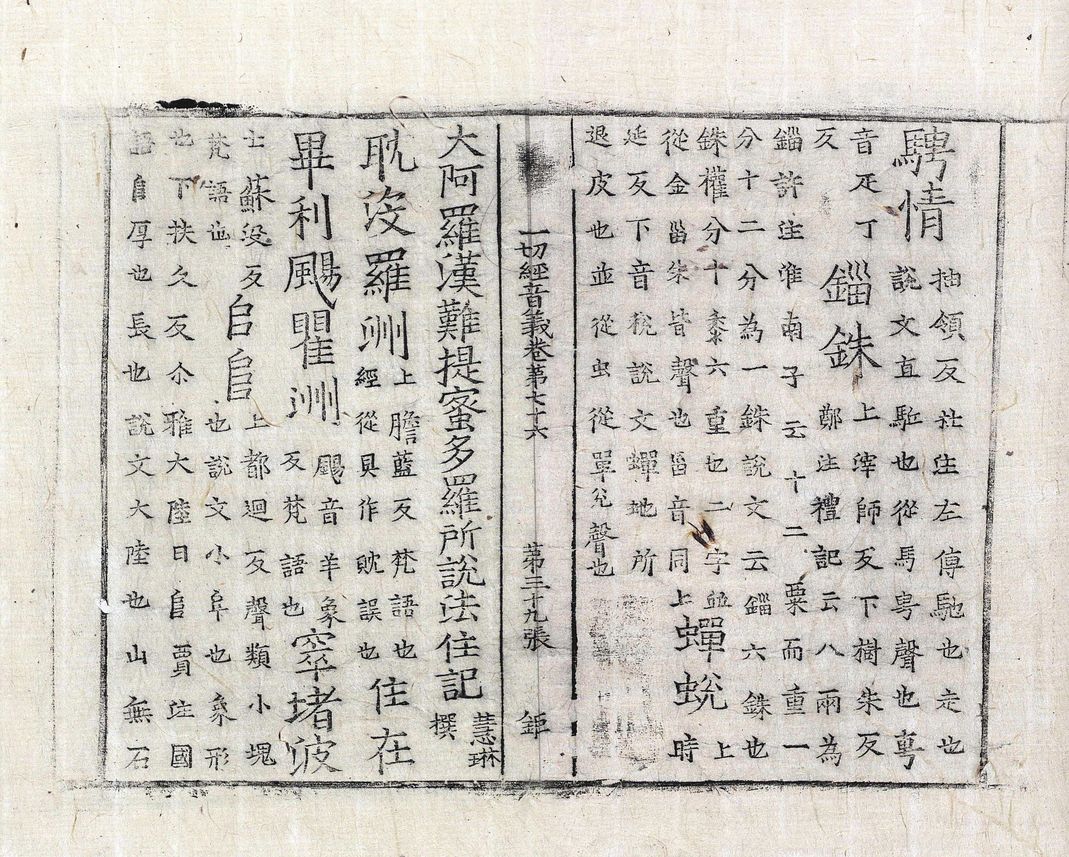 騁情抽領反杜注左傳馳也走也說文直駈也從馬甹聲也甹
音疋丁反錙銖上滓師反下樹朱反鄭注禮記云八兩為
錙許注淮南子云十二粟而重一分十二分為一銖說文云錙六銖也
銖權分十黍六重也二字並從金甾朱皆聲也甾音同上蟬蛻上時
延反下音稅說文蟬地所退皮也並從虫從單兌聲也
一切經音義卷第七十六 第三十九張 鉅
大阿羅漢難提蜜多羅所說法住記 慧琳撰
耽沒羅洲上膽藍反梵語也經從貝作貺誤也住在
畢利颺瞿洲颺音羊象反梵語也窣堵波
上蘇沒反梵語也𠂤𨸏上都迴反聲類小塊也說文小阜也象形
也下扶久反尒雅大陸曰𨸏賈注國語𨸏厚也長也說文大陸也山無石